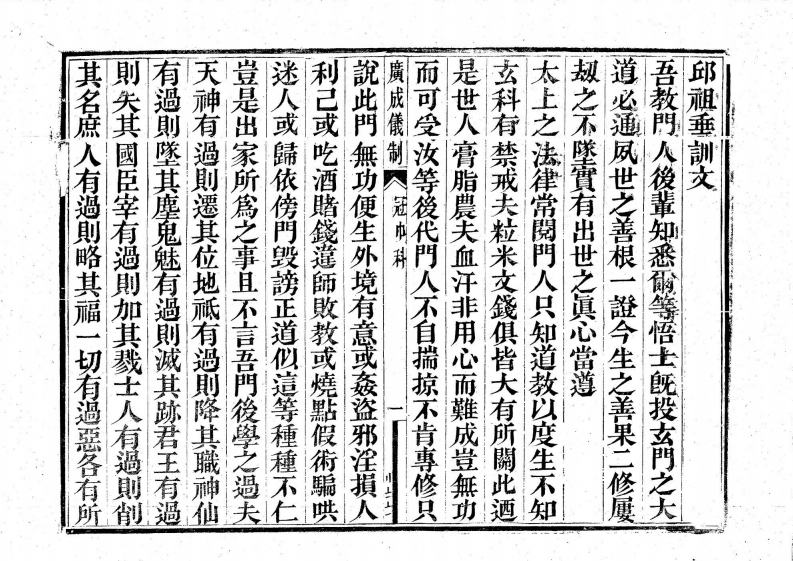 邱祖垂訓文
吾教門人後輩知悉爾等悟士旣投玄門之大
道必通夙世之善根一證今生之善果二修屢
刼之不墜實有出世之眞心當遵
太上之法律常閱門人只知道教以度生不知
玄科有禁戒夫粒米文錢俱皆大有所關此迺
是世人膏脂農夫血汗非用心而難成豈無功
而可受汝等後代門人不自揣掠不肯專修只
廣成儀制 冠巾科 一
說此門無功便生外境有意或姦盜邪淫損人
利己或吃酒賭錢違師敗教或燒點假術騙哄
迷人或歸依傍門毀謗正道似這等種種不仁
豈是出家所爲之事且不言吾門後學之過夫
天神有過則遷其位地祇有過則降其職神仙
有過則墜其塵鬼魅有過則滅其跡君王有過
則失其國臣宰有過則加其戮士人有過則削
其名庶人有過則略其福一切有過惡各有所